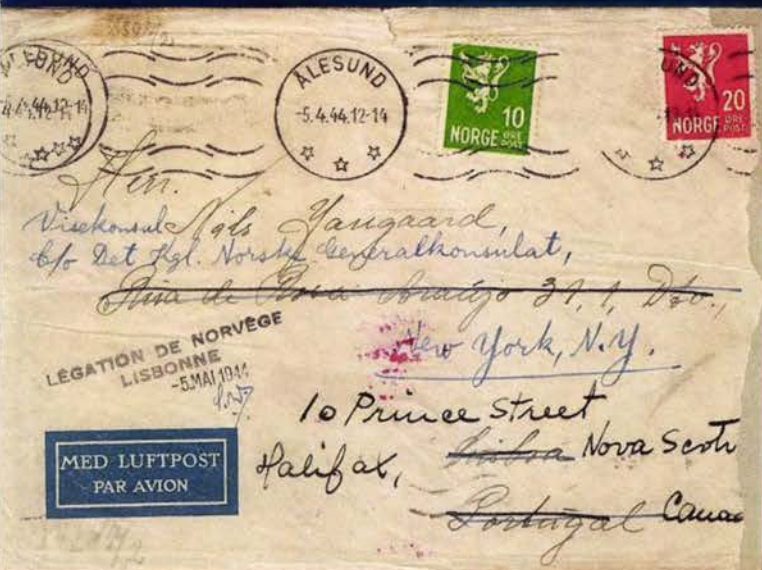 ÅLESUND
-5.4.44.12-14
10
NORGE ØRE POST
20
NORGE ØRE POST
Herr.
Visekonsul Nils
c/o Det Kgl. Norske Generalkonsulat,
Rua de Rosa Araújo 37, 1, Dto.,
LÉGATION DE NORVÈGE
LISBONNE
-5.MAI 1944
New York, N.Y.
10 Prince Street
Lisboa Nova Scoti
Halifax,
Portugal Cana
MED LUFTPOST
PAR AVION